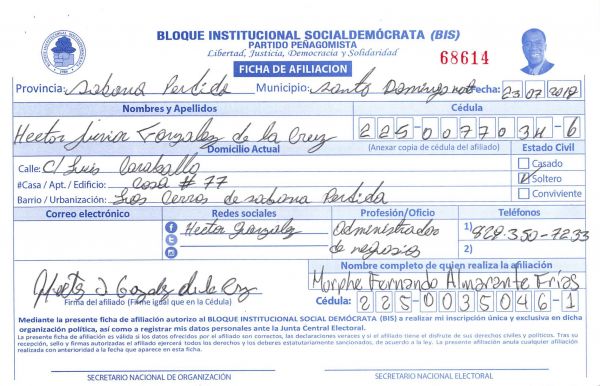 BLOQUE INSTITUCIONAL SOCIALDEMÓCRATA (BIS)
PARTIDO PEÑAGOMISTA
Libertad, Justicia, Democracia y Solidaridad
68614
FICHA DE AFILIACION
Provincia: Sabana Perdida Municipio: Santo Domingo Fecha: 23 07 2018
Nombres y Apellidos Cédula
Hector Junior Gonzalez de la Cruz 225-0077034-6
Domicilio Actual (Anexar copia de cédula del afiliado) Estado Civil
Calle: C/ Luis Caraballo Casado
#Casa / Apt. / Edificio: Casa # 77 Soltero
Barrio / Urbanización: Los Cerros de sabana Perdida Conviviente
Correo electrónico Redes sociales Profesión/Oficio Teléfonos
Hector Gonzalez administrador 1) 829-350-7233
de negosios 2)
Nombre completo de quien realiza la afiliación
Morphe Fernando Almarante Frías
Firma del afiliado (Firme igual que en la Cédula) Cédula: 225-0035046-1
Mediante la presente ficha de afiliación autorizo al BLOQUE INSTITUCIONAL SOCIAL DEMÓCRATA (BIS) a realizar mi inscripción única y exclusiva en dicha
organización política, así como a registrar mis datos personales ante la Junta Central Electoral.
La presente ficha de afiliación es válida si los datos ofrecidos por el afiliado son correctos, las declaraciones veraces y si el afiliado tiene el disfrute de sus derechos civiles y políticos. Tras su
recepción, sello y firmas autorizadas el afiliado ejercerá todos los derechos y los deberes estatutariamente sancionados, de acuerdo a la ley. La presente ficha anula cualquier afiliación
realizada con anterioridad a la fecha que aparece en esta ficha.
SECRETARIO NACIONAL DE ORGANIZACIÓN SECRETARIO NACIONAL ELECTORAL